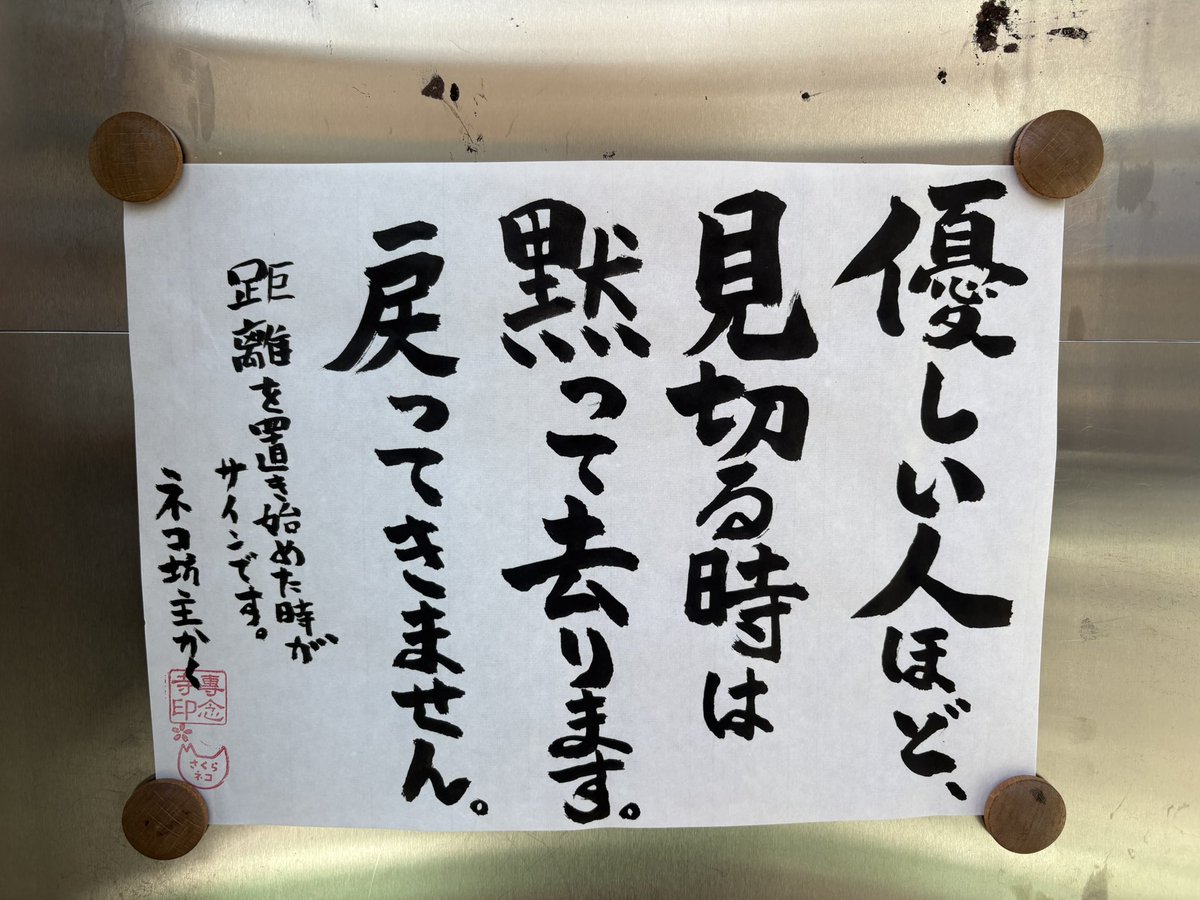 優しい人ほど、
見切る時は
黙って去ります。
戻ってきません。
距離を置き始めた時が
サインです。
ネコ坊主かく
専念
寺印
さくら
ネコ